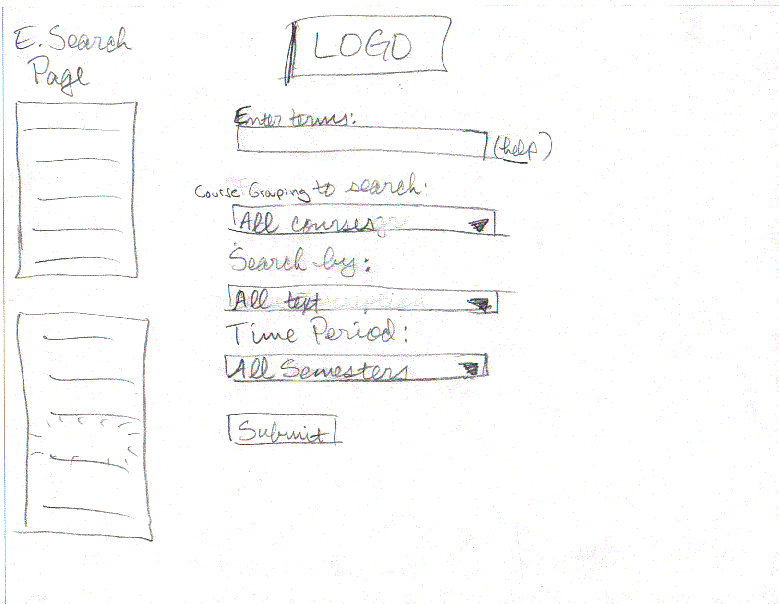 E. Search
Page
LOGO
Enter terms:
(help)
Course Grouping to search:
All courses
Search by:
All text
Time Period:
All Semesters
Submit